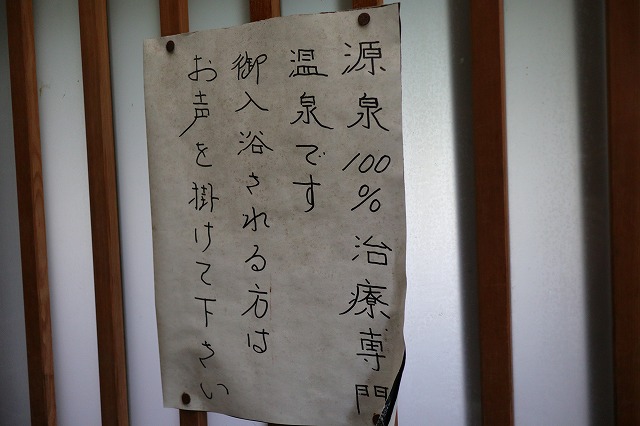 源泉100%治療専門
温泉です
御入浴される方は
お声を掛けて下さい